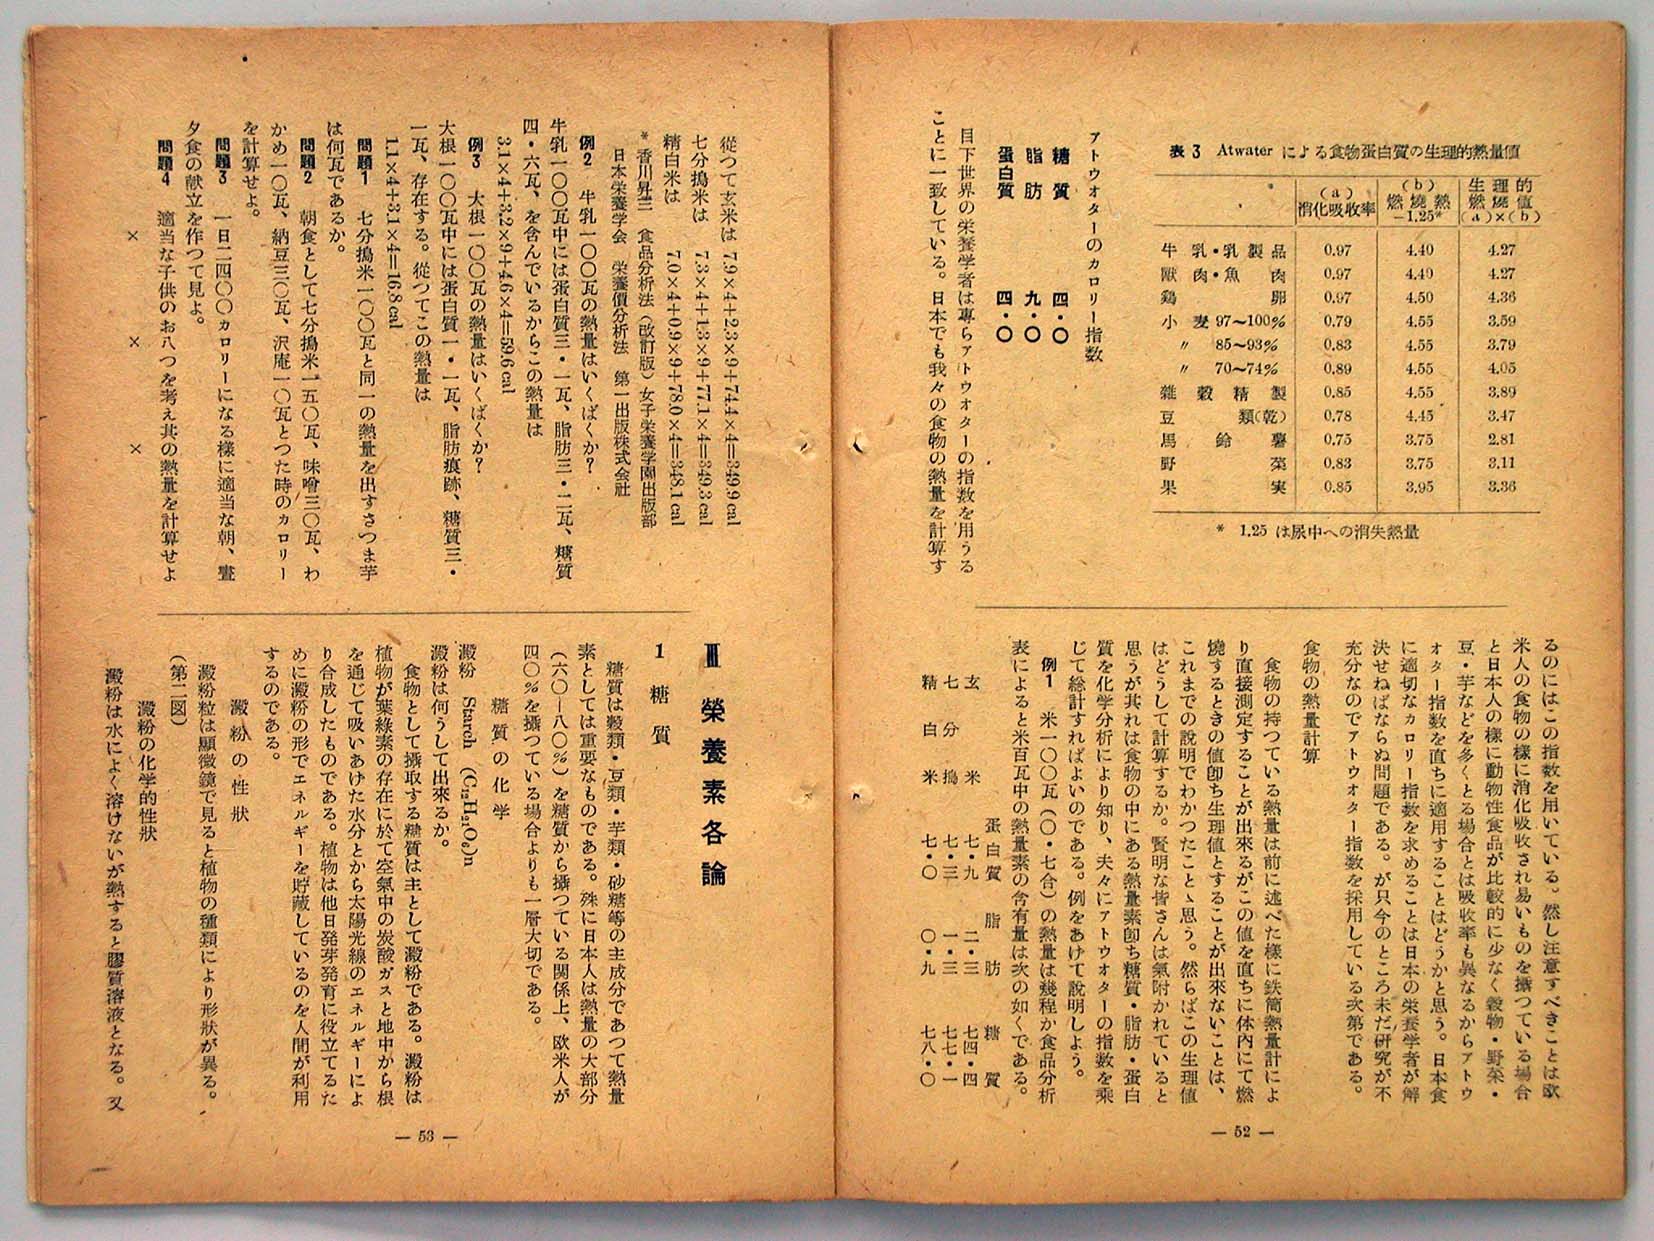 表3 Atwater による食物蛋白質の生理的熱量値
(a) 消化吸收率
(b) 燃燒熱 −1.25*
生理的燃燒値 (a)×(b)
牛乳・乳製品 0.97 4.40 4.27
獸肉・魚肉 0.97 4.40 4.27
鶏卵 0.97 4.50 4.36
小麦 97〜100% 0.79 4.55 3.59
〃 85〜93% 0.83 4.55 3.79
〃 70〜74% 0.89 4.55 4.05
雑穀精製 0.85 4.55 3.89
豆類(乾) 0.78 4.45 3.47
馬鈴薯 0.75 3.75 2.81
野菜 0.83 3.75 3.11
果実 0.85 3.95 3.36
* 1.25 は尿中への消失熱量
アトウオターのカロリー指数
糖質 四・〇
脂肪 九・〇
蛋白質 四・〇
目下世界の栄養学者は專らアトウオターの指数を用うる
ことに一致している。日本でも我々の食物の熱量を計算す
るのにはこの指数を用いている。然し注意すべきことは欧
米人の食物の様に消化吸收され易いものを攝つている場合
と日本人の様に動物性食品が比較的に少なく穀物・野菜・
豆・芋などを多くとる場合とは吸收率も異なるからアトウ
オター指数を直ちに適用することはどうかと思う。日本食
に適切なカロリー指数を求めることは日本の栄養学者が解
決せねばならぬ問題である。が只今のところ未だ研究が不
充分なのでアトウオター指数を採用している次第である。
食物の熱量計算
食物の持つている熱量は前に述べた様に鉄筒熱量計によ
り直接測定することが出來るがこの値を直ちに体内にて燃
燒するときの値卽ち生理値とすることが出來ないことは、
これまでの説明でわかつたことゝ思う。然らばこの生理値
はどうして計算するか。賢明な皆さんは氣附かれていると
思うが其れは食物の中にある熱量素卽ち糖質・脂肪・蛋白
質を化学分析により知り、夫々にアトウオターの指数を乘
じて総計すればよいのである。例をあけて説明しよう。
例1 米一〇〇瓦(〇・七合)の熱量は幾程か食品分析
表によると米百瓦中の熱量素の含有量は次の如くである。
蛋白質 脂肪 糖質
玄米 七・九 二・三 七四・四
七分搗米 七・三 一・三 七七・一
精白米 七・〇 〇・九 七八・〇
— 52 —
從つて玄米は 7.9×4+2.3×9+74.4×4=349.9cal
七分搗米は 7.3×4+1.3×9+77.1×4=349.3cal
精白米は 7.0×4+0.9×9+78.0×4=348.1cal
*香川昇三 食品分析法(改訂版)女子栄養学園出版部
日本栄養学会 栄養價分析法 第一出版株式会社
例2 牛乳一〇〇瓦の熱量はいくばくか?
牛乳一〇〇瓦中には蛋白質三・一瓦、脂肪三・二瓦、糖質
四・六瓦、を含んでいるからこの熱量は
3.1×4+3.2×9+4.6×4=59.6cal
例3 大根一〇〇瓦の熱量はいくばくか?
大根一〇〇瓦中には蛋白質一・一瓦、脂肪痕跡、糖質三・
一瓦、存在する。從つてこの熱量は
1.1×4+3.1×4=16.8cal
問題1 七分搗米一〇〇瓦と同一の熱量を出すさつま芋
は何瓦であるか。
問題2 朝食として七分搗米一五〇瓦、味噌三〇瓦、わ
かめ一〇瓦、納豆三〇瓦、沢庵一〇瓦とつた時のカロリー
を計算せよ。
問題3 一日二四〇〇カロリーになる様に適当な朝、晝
夕食の献立を作つて見よ。
問題4 適当な子供のお八つを考え其の熱量を計算せよ
× × ×
Ⅲ 榮養素各論
1 糖質
糖質は穀類・豆類・芋類・砂糖等の主成分であつて熱量
素としては重要なものである。殊に日本人は熱量の大部分
(六〇―八〇%)を糖質から攝つている関係上、欧米人が
四〇%を攝つている場合よりも一層大切である。
糖質の化学
澱粉 Starch (C₁₂H₂₁O₆)n
澱粉は何うして出來るか。
食物として攝取する糖質は主として澱粉である。澱粉は
植物が葉緑素の存在に於て空氣中の炭酸ガスと地中から根
を通じて吸いあけた水分とから太陽光線のエネルギーによ
り合成したものである。植物は他日発芽発育に役立てるた
めに澱粉の形でエネルギーを貯蔵しているのを人間が利用
するのである。
澱粉の性狀
澱粉粒は顕微鏡で見ると植物の種類により形狀が異る。
(第二図)
澱粉の化学的性狀
澱粉は水によく溶けないが熱すると膠質溶液となる。又
— 53 —